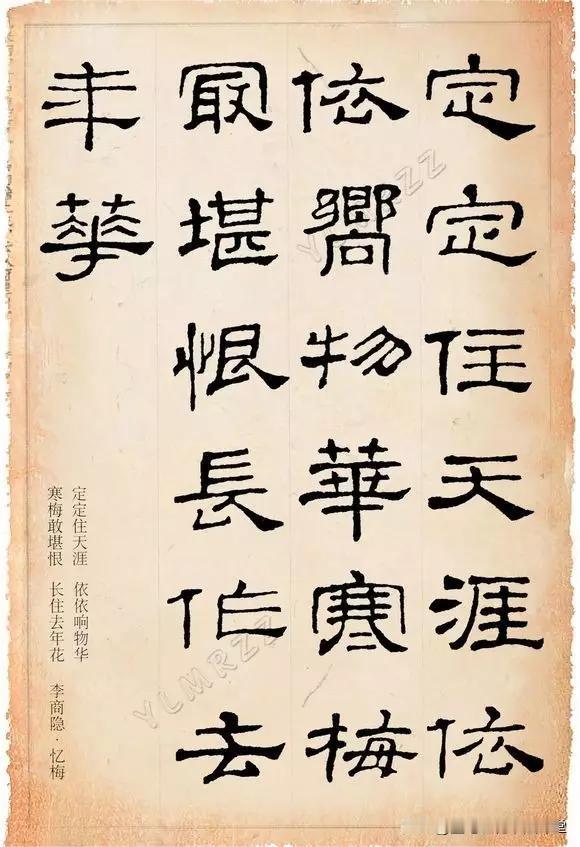 定定住天涯依
依嚮物華寒梅
最堪恨長作去
年華
定定住天涯 依依响物华
寒梅敢堪恨 长住去年花 李商隐·忆梅
YLMRZZ
YLMRZZ